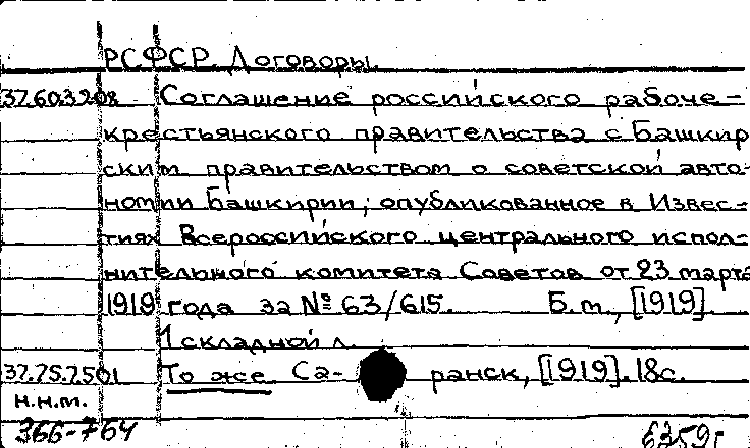 РСФСР. Договоры.
37.60.3208 Соглашение российского рабоче-
крестьянского правительства с Башкир
ским правительством о советской авто-
номии Башкирии, опубликованное в Извес-
тиях Всероссийского центрального испол-
нительного комитета Советов от 23 марта
1919 года за № 63/615. Б.т., [1919].
1 складной л.
37.75.7501 То же. Са- ранск, [1919]. 18с.
н.н.т.
366-764 6359г